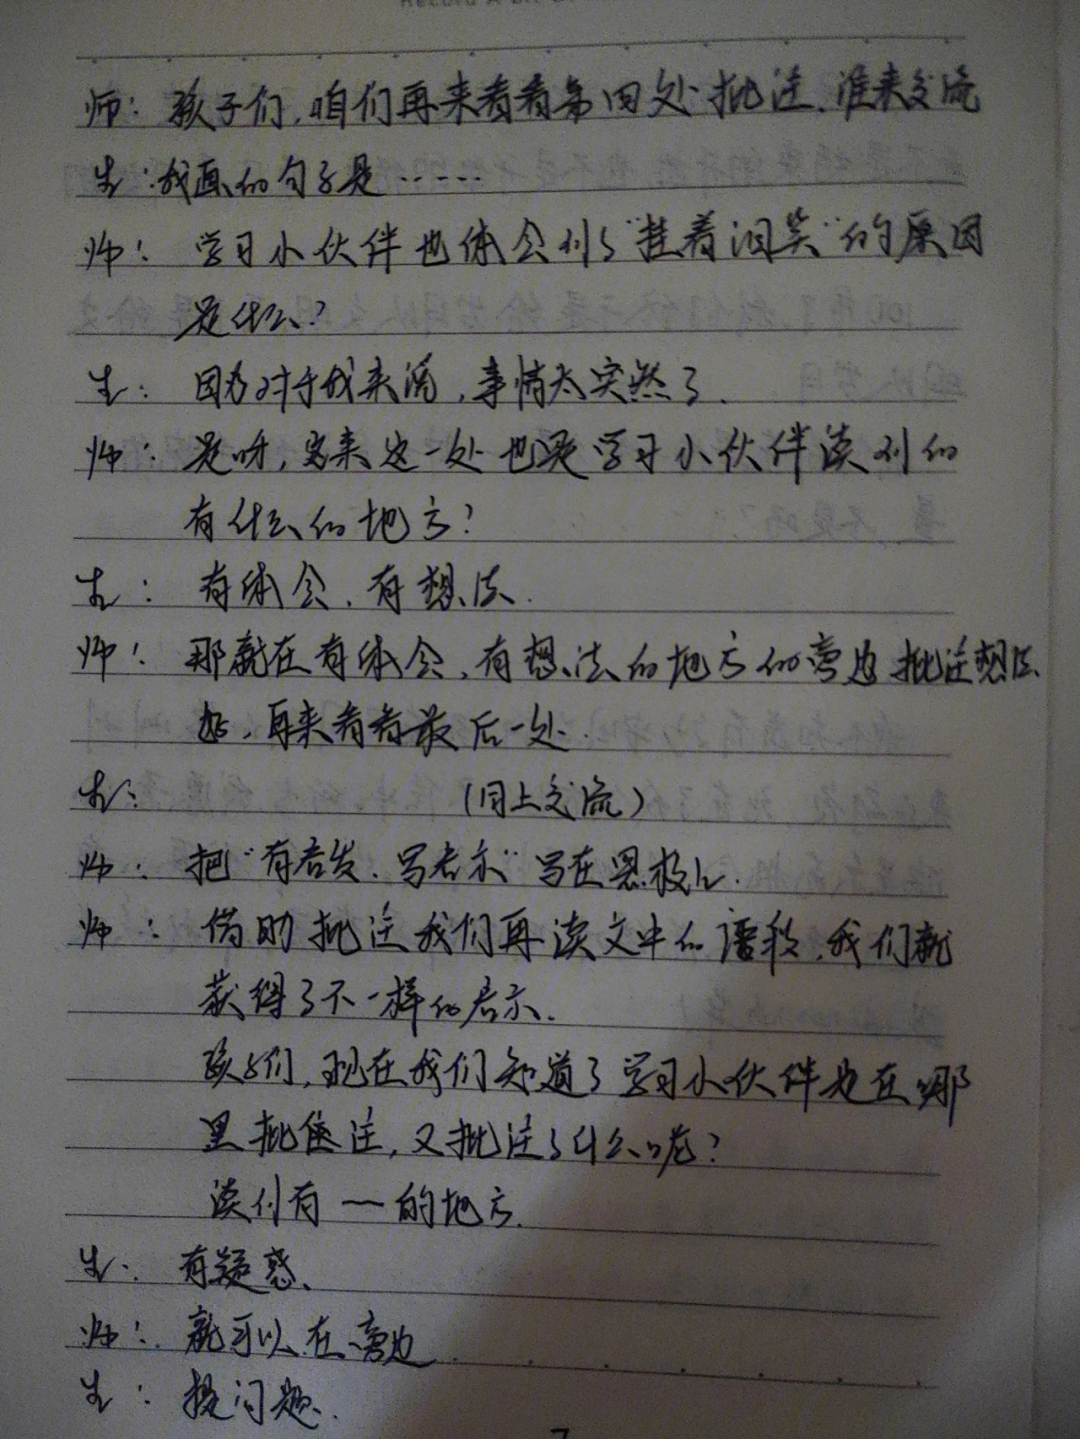 师：孩子们，咱们再来看看第四处批注，谁来交流
生：我画的句子是……
师：学习小伙伴也体会到了"挂着泪笑"的原因
是什么？
生：因为对于我来说，事情太突然了．
师：是呀，原来这一处也是学习小伙伴读到的
有什么的地方？
生：有体会、有想法．
师：那就在有体会、有想法的地方的旁边批注想法．
好，再来看看最后一处．
生：（同上交流）
师：把"有启发、写启示"写在黑板上．
师：借助批注我们再读文中的语段，我们就
获得了不一样的启示．
孩子们，现在我们知道了学习小伙伴是在哪
里批注，又批注了什么呢？
读到有一的地方．
生：有疑惑、
师：就可以在旁边
生：提问题．